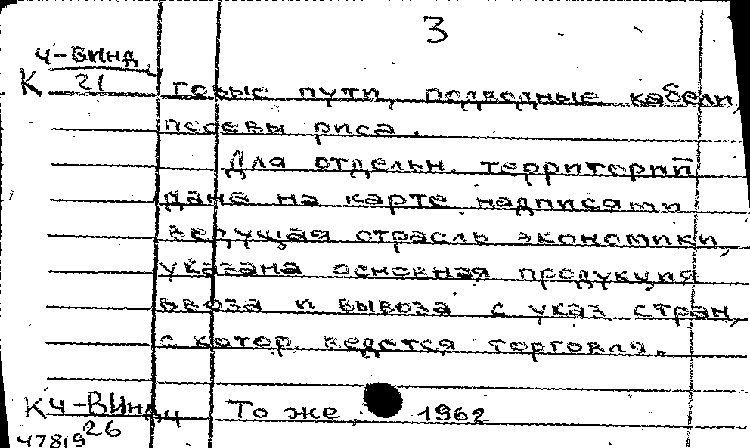 3
Ч-Винд.
К 21 говые пути, подводные кабели,
посевы риса.
Для отдельн. территорий
дана на карте надписями
ведущая отрасль экономики,
указана основная продукция
ввоза и вывоза с указ стран,
с котор. ведется торговля.
К Ч-Винд, 4 То же, 1962
26
47819